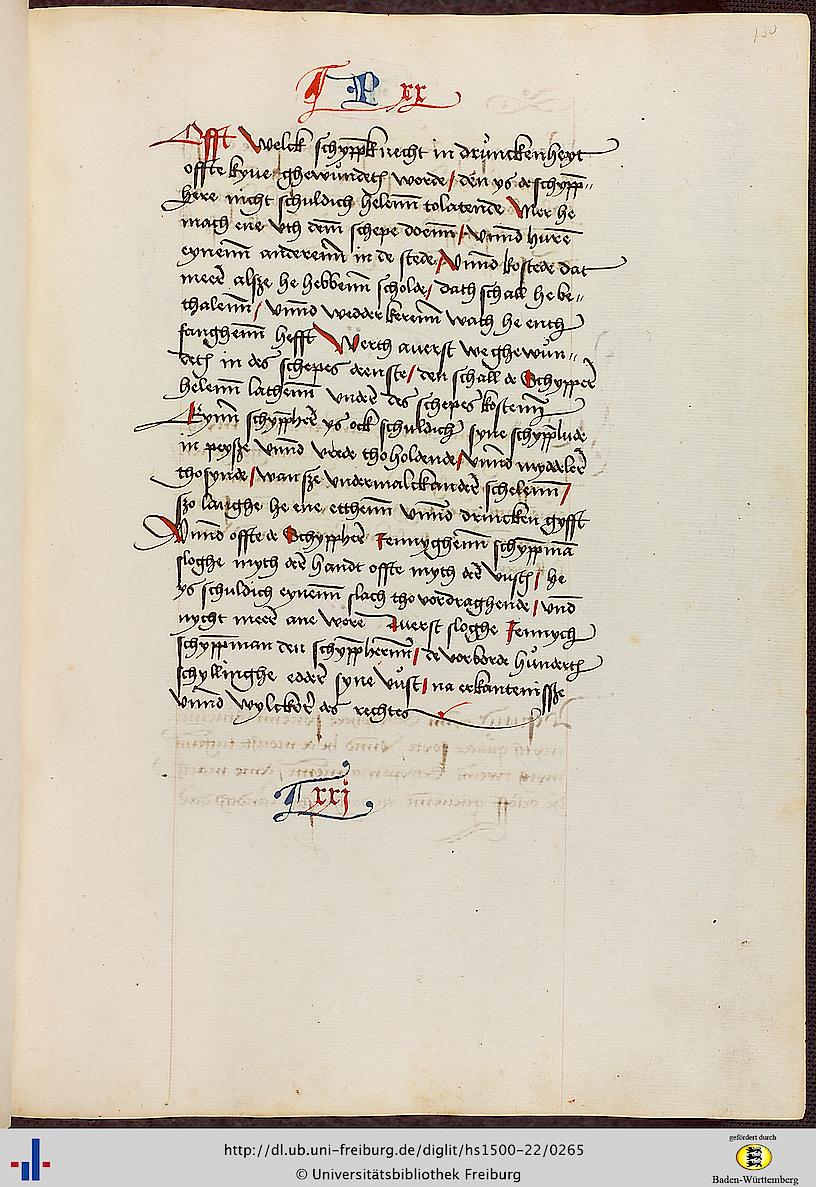 130
P xx
Offt Welck schyppknecht in drunckenheyt
offte kyue ghewundeth worde / den ys de schypp-
here nicht schuldich helenn tolatende Mer he
mach ene vth dem schepe doenn / Vnnd huren
eynenn anderenn in de stede / Vnnd kostede dat
meer alsze he hebbenn scholde / dath schall he be-
thalenn / vnnd wedderkerenn wath he enth
fanghenn hefft Werth auerst we ghewun-
deth in des schepes denste / den schall de Schypper
helenn lathenn vnder des schepes kostenn
Eynn schyppher ys ock schuldich syne schypplude
in peysze vnnd vrede tho holdende / vnnd myddeler
tho synde / wan sze vndermalckander schelenn /
szo langhe he ene etthenn vnnd drincken gyfft
Vnnd offte de Schyppher Jennyghenn schyppma
sloghe myth der handt offte myth der vusth / he
ys schuldich eynenn slach tho vordraghende / vnd
nycht meer ane were Auerst sloghe Jennych
schyppman den schyppherenn / de vorborde hunderth
schyllinghe edder syne vust / na erkantenisse
vnnd wylckoer des rechtes
xxj
http://dl.ub.uni-freiburg.de/diglit/hs1500-22/0265
© Universitätsbibliothek Freiburg
gefördert durch
Baden-Württemberg